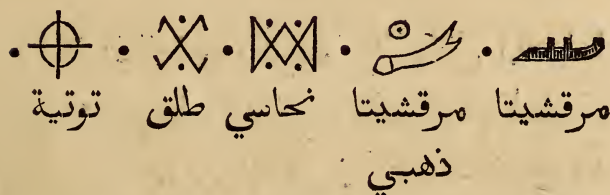 مرقشيتا مرقشيتا نحاسي طلق توتية
ذهبي